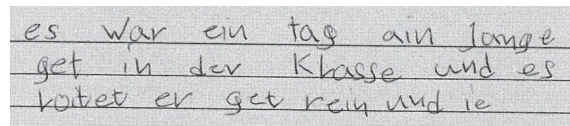 es war ein tag ain Junge
get in der Klasse und es
loitet er get rein und ie